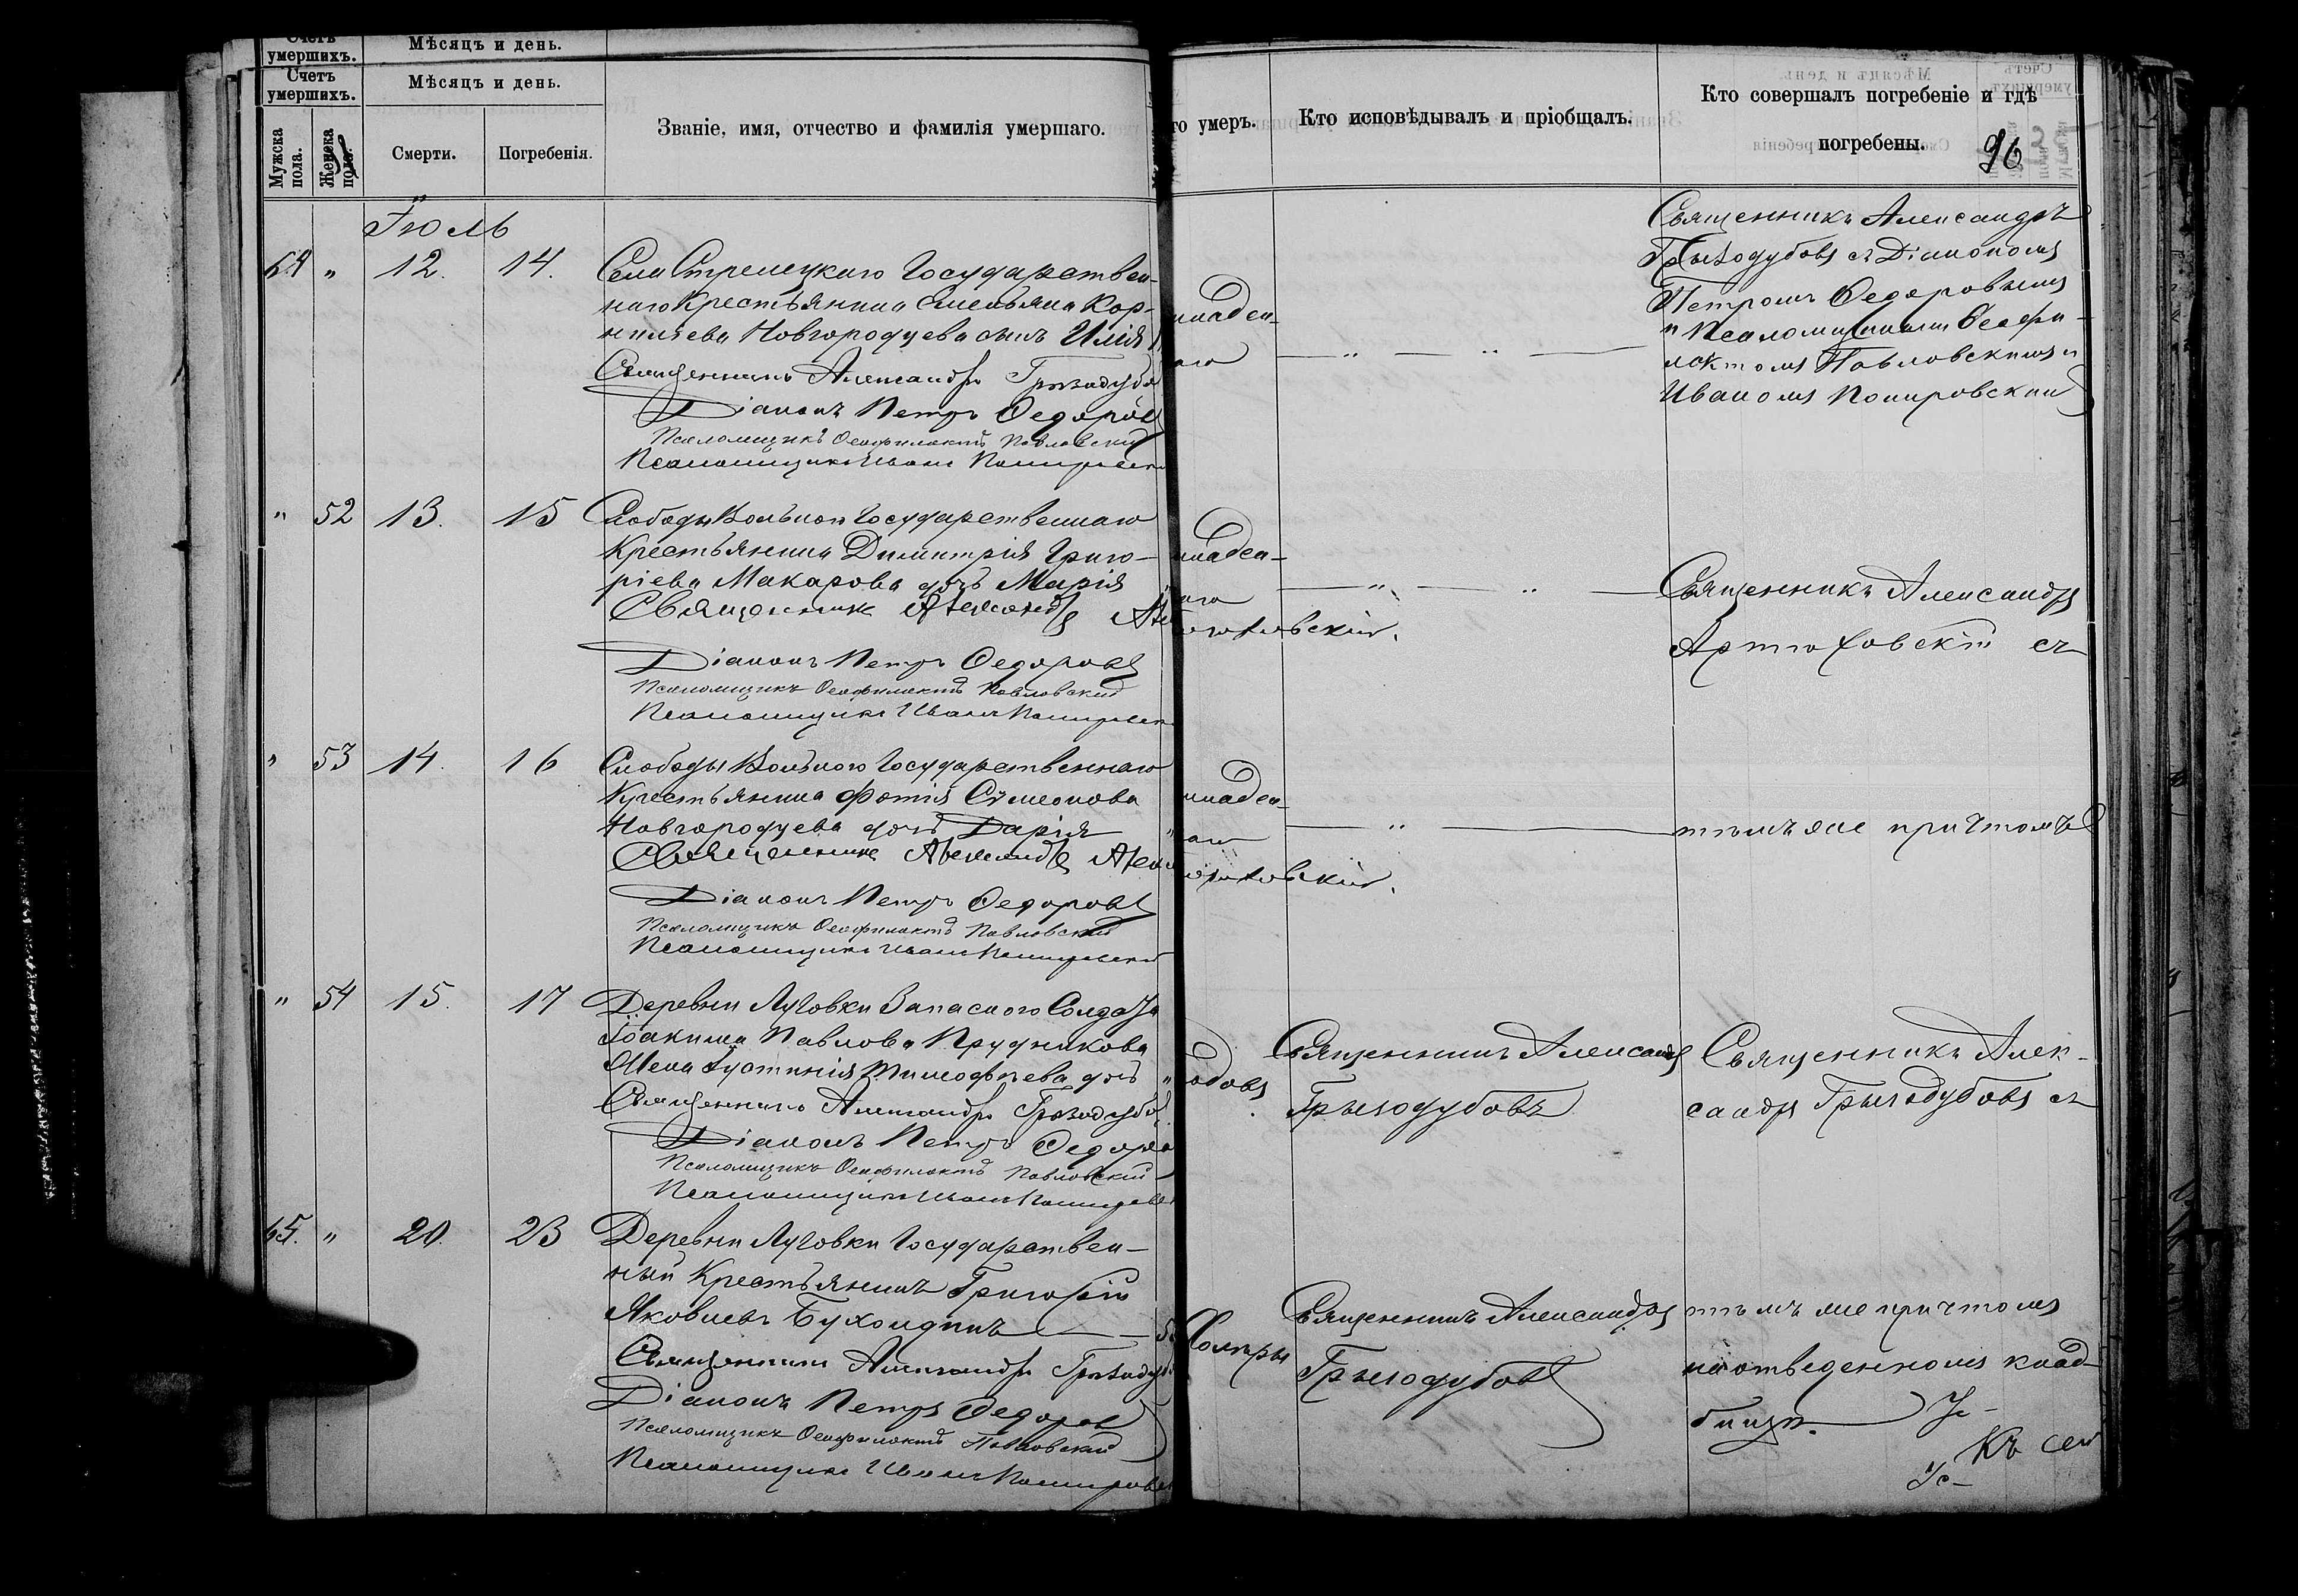 Счетъ умершихъ.
Мѣсяцъ и день.
Счетъ умершихъ.
Мѣсяцъ и день.
Мужска пола.
Женска пола.
Смерти.
Погребенія.
Званіе, имя, отчество и фамилія умершаго.
го умеръ.
Кто исповѣдывалъ и пріобщалъ.
Кто совершалъ погребеніе и гдѣ
погребены.
96
Іюль
64 " 12. 14.
Села Стрелецкаго Государствен-
наго Крестьянина Емельяна Кор-
нильева Новгородцева сынъ Илія
Священникъ Александръ
Діаконъ Петръ Ѳедоровъ
Псаломщикъ Ѳеофилактъ Павловскій
Псаломщикъ Иванъ
младен-
Священникъ Александръ
съ Діакономъ
Петромъ Ѳедоровымъ
и Псаломщиками Ѳеофи-
лактомъ Павловскимъ и
Иваномъ
" 52 13. 15
Слободы Вольной Государственнаго
Крестьянина Димитрія Григо-
ріева Макарова дочь Марія
Священникъ Александръ
Діаконъ Петръ Ѳедоровъ
Псаломщикъ Ѳеофилактъ Павловскій
Псаломщикъ Иванъ
младен-
Священникъ Александръ
Артюховскій съ
" 53 14. 16
Слободы Вольной Государственнаго
Крестьянина Фотія Сѵмеонова
Новгородцева дочь Дарія
Священникъ Александръ
Діаконъ Петръ Ѳедоровъ
Псаломщикъ Ѳеофилактъ Павловскій
Псаломщикъ Иванъ
младен-
тѣмъ же причтомъ
" 54 15. 17
Деревни Луговки Запаснаго Солдата
Іоакима Павлова Прудникова
Жена Іустинія Тимофѣева дочь
Священникъ Александръ
Діаконъ Петръ
Псаломщикъ Ѳеофилактъ Павловскій
Псаломщикъ Иванъ
Священникъ Александръ
Священникъ Алек-
сандръ съ
65. " 20. 23
Деревни Луговки Государствен-
ный Крестьянинъ Григорій
Яковлевъ
Священникъ Александръ
Діаконъ Петръ Ѳедоровъ
Псаломщикъ Ѳеофилактъ Павловскій
Псаломщикъ Иванъ
Священникъ Александръ
тѣмъ же причтомъ
на отведенномъ клад-
бищѣ.
Къ сей